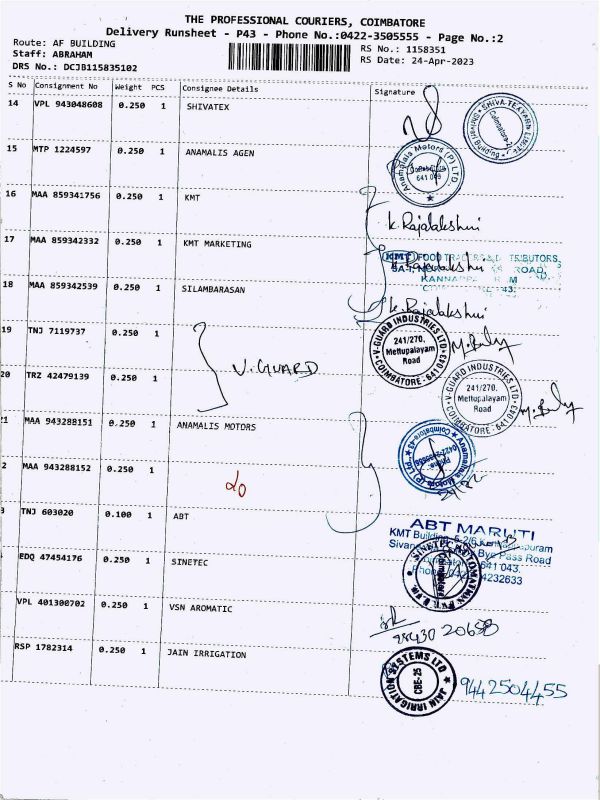 THE PROFESSIONAL COURIERS, COIMBATORE
Delivery Runsheet - P43 - Phone No.:0422-3505555 - Page No.:2
Route: AF BUILDING
Staff: ABRAHAM
DRS No.: DCJB115835102
RS No.: 1158351
RS Date: 24-Apr-2023
S No Consignment No Weight PCS Consignee Details Signature
14 VPL 943048608 0.250 1 SHIVATEX
15 MTP 1224597 0.250 1 ANAMALIS AGEN
Anamalais Motors (P) LTD.
641 043
16 MAA 859341756 0.250 1 KMT
K. Rajalakshmi
17 MAA 859342332 0.250 1 KMT MARKETING
K. Rajalakshmi
KMT FOOD
ROAD,
18 MAA 859342539 0.250 1 SILAMBARASAN
K. Rajalakshmi
19 TNJ 7119737 0.250 1
V. GUARD
V-GUARD INDUSTRIES LTD
241/270,
Mettupalayam
Road
COIMBATORE - 641 043
20 TRZ 42479139 0.250 1
V-GUARD INDUSTRIES LTD
241/270,
Mettupalayam
Road
COIMBATORE - 641 043
21 MAA 943288151 0.250 1 ANAMALIS MOTORS
2 MAA 943288152 0.250 1
20
TNJ 603020 0.100 1 ABT
ABT MARUTI
KMT Building
Bye Pass Road
641 043.
4232633
EDQ 47454176 0.250 1 SINETEC
VPL 401300702 0.250 1 VSN AROMATIC
98430 20658
RSP 1782314 0.250 1 JAIN IRRIGATION
JAIN IRRIGATION SYSTEMS LTD
CBE-25
9442504455